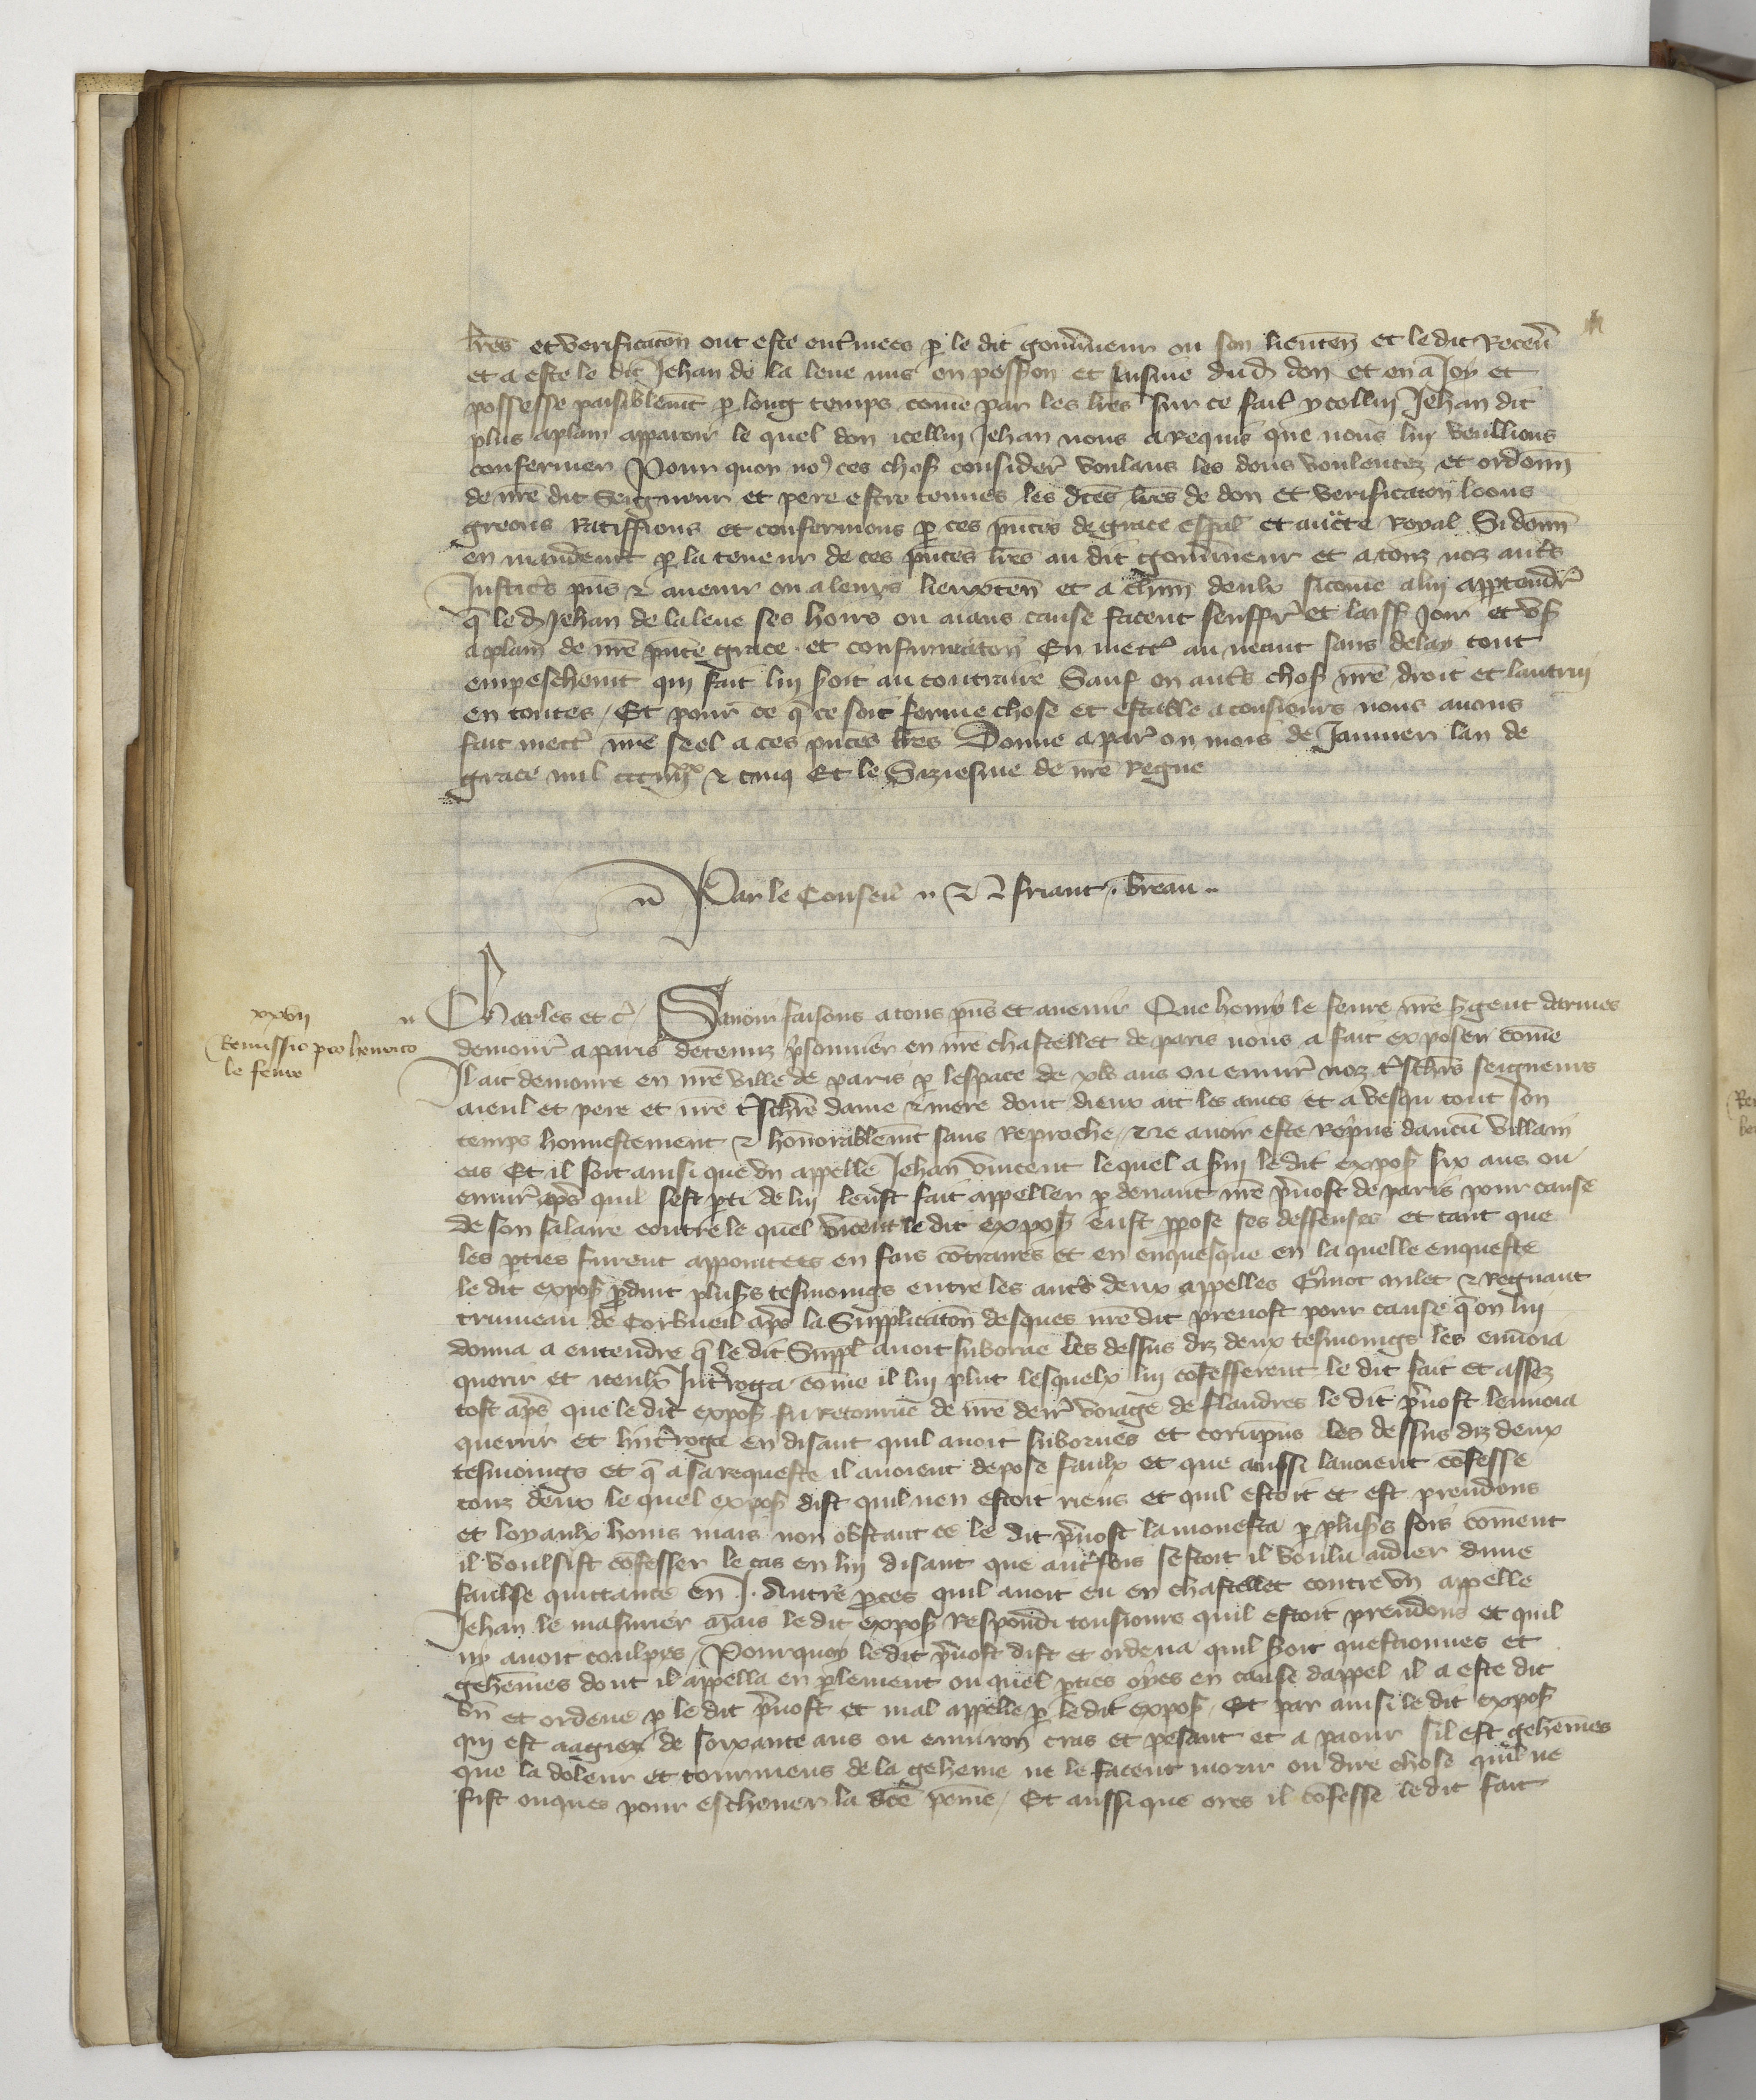 lres et verificacon ont este enterinees p le dit gouvneur ou son lieuten et le dit Receu
et a este le dit Jehan de la leue mis en possion et saisine dud don et en a Joy et
possesse paisiblemt p long temps come par les lres sur ce fait ycellui Jehan dit
plus aplain apparoir le quel don icellui Jehan nous a Requis que nous lui veullions
confermer Pour quoy no9 ces chos consider voulans les dons voulentez et ordonn
de nre dit Seigneur et pere estre tenues les dces lres de don et verificacon loons
greons Ratiffions et confermons p ces pntes de grace espal et aucte Royal Si donn
en mandemt p la teneur de ces pntes lres au dit gouvneur et a touz noz autres
Justices pns & avenir ou a leurs lieuxten et a chun deulx sicome a lui apptendr
q le d Jehan de laleue ses hoirs ou aians cause facent seuffr et laiss Joir et us
aplain de nre pnte grace et confirmacon En mectt au neant sans delay tout
empeschemt qui fait lui soit au contraire Sauf en autres chos nre droit et lautrui
en toutes / Et pour ce q ce soit ferme chose et estable a tousiours nous avons
fait mectt nre seel a ces pntes lres Donne a par ou mois de Janvier lan de
grace mil ccciiijxx & cinq Et le Siziesme de nre Regne
Par le Conseil & friant . breau
xxvii
Remissio pro henrico
le fevre
Charles et c Savoir faisons a tous pns et avenir Que henry le fevre nre sgent darmes
demour a paris detenuz psonnier en nre chastellet de paris nous a fait exposer come
Il ait demoure en nre ville de paris p lespace de xlv ans ou enuir noz tschrs seigneurs
aieul et pere et nre tschre dame & mere dont dieux ait les ames et a vesqu tout son
temps honnestement & honnorablemt sans Reproche / & ne avoir este Repns daucun villain
cas Et il soit ainsi que un appelle Jehan vincent lequel a svi le dit expos six ans ou
envir aps quil sest pti de lui leust fait appeller p devant nre pvost de paris pour cause
de son salaire contre le quel vicent le dit expos eust ppose ses deffenses et tant que
les pties furent appointees en fais contraires et en enquesque en la quelle enqueste
le dit expos pduit plus tesmoings entre les autres deux appelles Gmot anlet & Regnaut
trumeau de Corbueil aps la Supplicacon desques nre dit prevost pour cause q on lui
donna a entendre q le dit Suppl avoit suborne les dessus diz deux tesmoings les envoia
querir et iceulx Introga come il lui plut lesquelx lui cofesserent le dit fait et assez
tost aps que le dit expos fu retourne de nre derr voiage de flandres le dit pvost lenvoia
querir et lintroga en disant quil avoit subornes et corupus les dessus diz deux
tesmoings et q a sa requeste il avoient depose faulx et que aussi lavoient cofesse
touz deux le quel expos dist quil nen estoit riens et quil estoit et est preudons
et loyaulx homs mais non obstant ce le dit pvost lamonesta p plus fois coment
il voulsist cofesser le cas en lui disant que autrefois sestoit il voulu aidier dune
faulse quittance en .J. Autre pces quil avoit eu en chastellet contre un appelle
Jehan le masurier Mais le dit expos Respondi tousiours quil estoit preudons et quil
ny avoit coulpes / Pourquoy le dit pvost dist et ordena quil soit questionnes et
gehennes dont il appella en plement ou quel pties oyes en cause dappel il a este dit
bn et ordene p le dit pvost et mal appelle p le dit expos / Et par ainsi le dit expos
qui est aagiez de soixante ans ou environ cras et pesant et a paour sil est gehennes
que la doleur et tourmens de la gehenne ne le facent morir ou dire chose quil ne
fist onques pour eschever la dce peine / Et aussi que ores il cofesse le dit fait